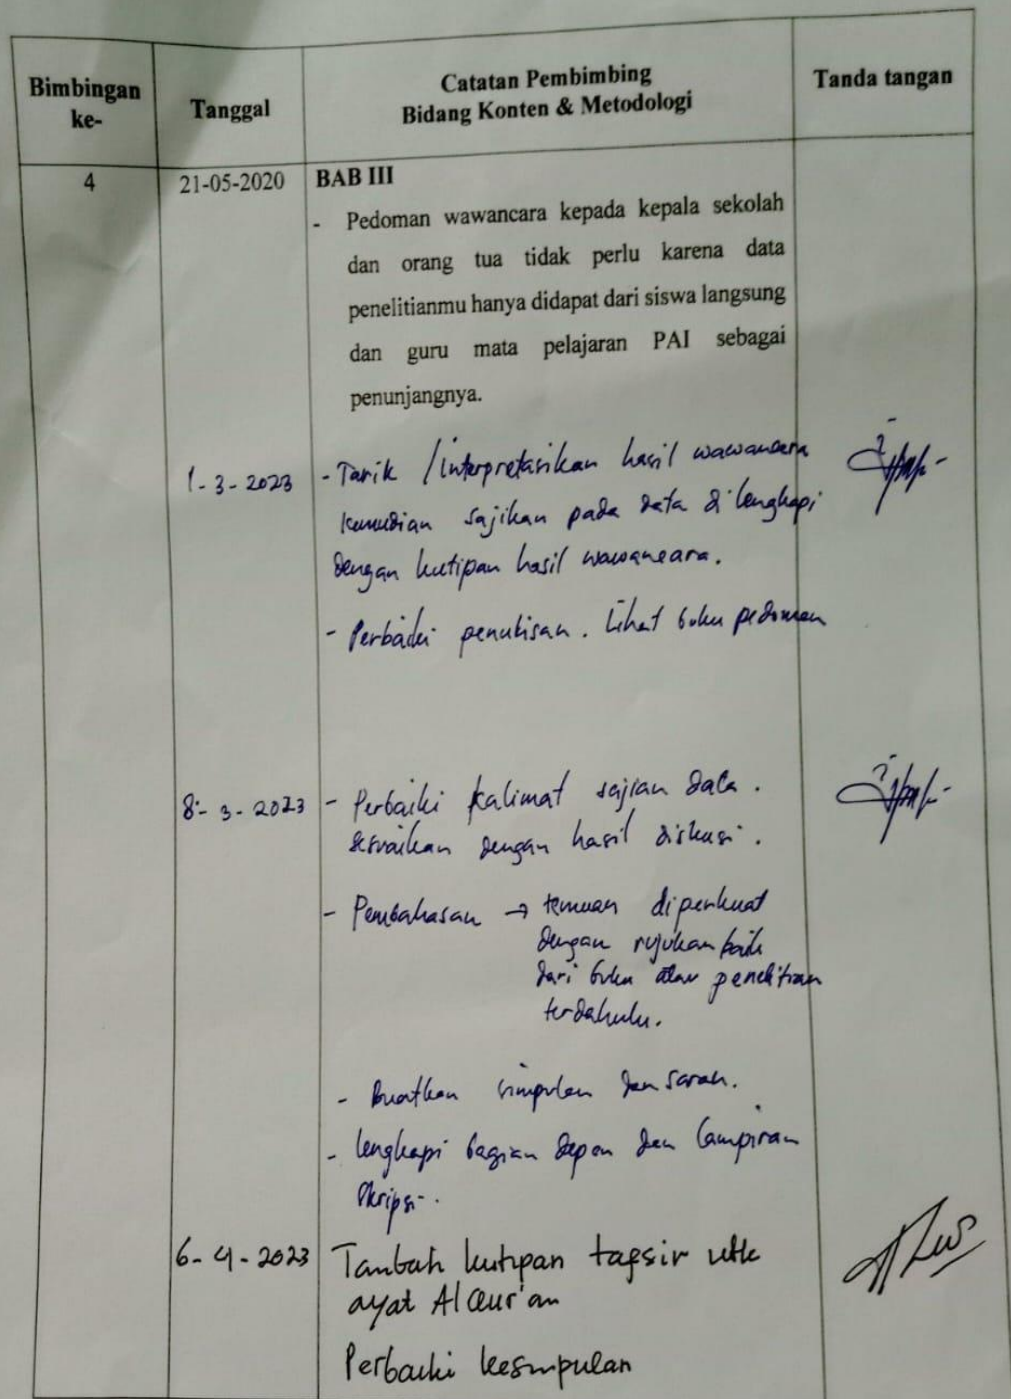 Bimbingan ke-
Tanggal
Catatan Pembimbing
Bidang Konten & Metodologi
Tanda tangan
4
21-05-2020
BAB III
- Pedoman wawancara kepada kepala sekolah
dan orang tua tidak perlu karena data
penelitianmu hanya didapat dari siswa langsung
dan guru mata pelajaran PAI sebagai
penunjangnya.
1-3-2023
- Tarik / interpretasikan hasil wawancara
kemudian sajikan pada data dilengkapi
dengan kutipan hasil wawancara.
- Perbaiki penulisan. Lihat buku pedoman
8-3-2023
- Perbaiki kalimat sajian data.
sesuaikan dengan hasil diskusi.
- Pembahasan → temuan diperkuat
dengan rujukan baik
dari buku atau penelitian
terdahulu.
- Buatkan simpulan dan saran.
- lengkapi bagian depan dan lampiran
skripsi.
6-4-2023
Tambah kutipan tafsir utk
ayat Al Qur'an
Perbaiki kesimpulan